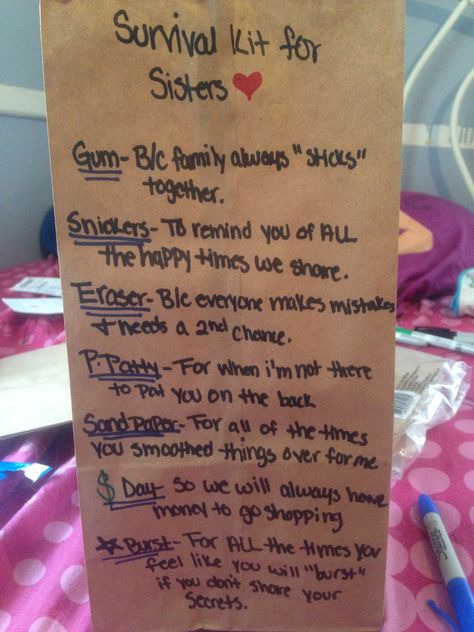 Survival Kit for
Sisters ♥
Gum- B/c family always "sticks"
together.
Snickers- To remind you of ALL
the happy times we share.
Eraser- B/c everyone makes mistakes
+ needs a 2nd chance.
P. Patty- For when i'm not there
to pat you on the back
Sandpaper- For all of the times
you smoothed things over for me
$ Day- So we will always have
money to go shopping
★ Burst- For ALL the times you
feel like you will "burst"
if you don't share your
secrets.